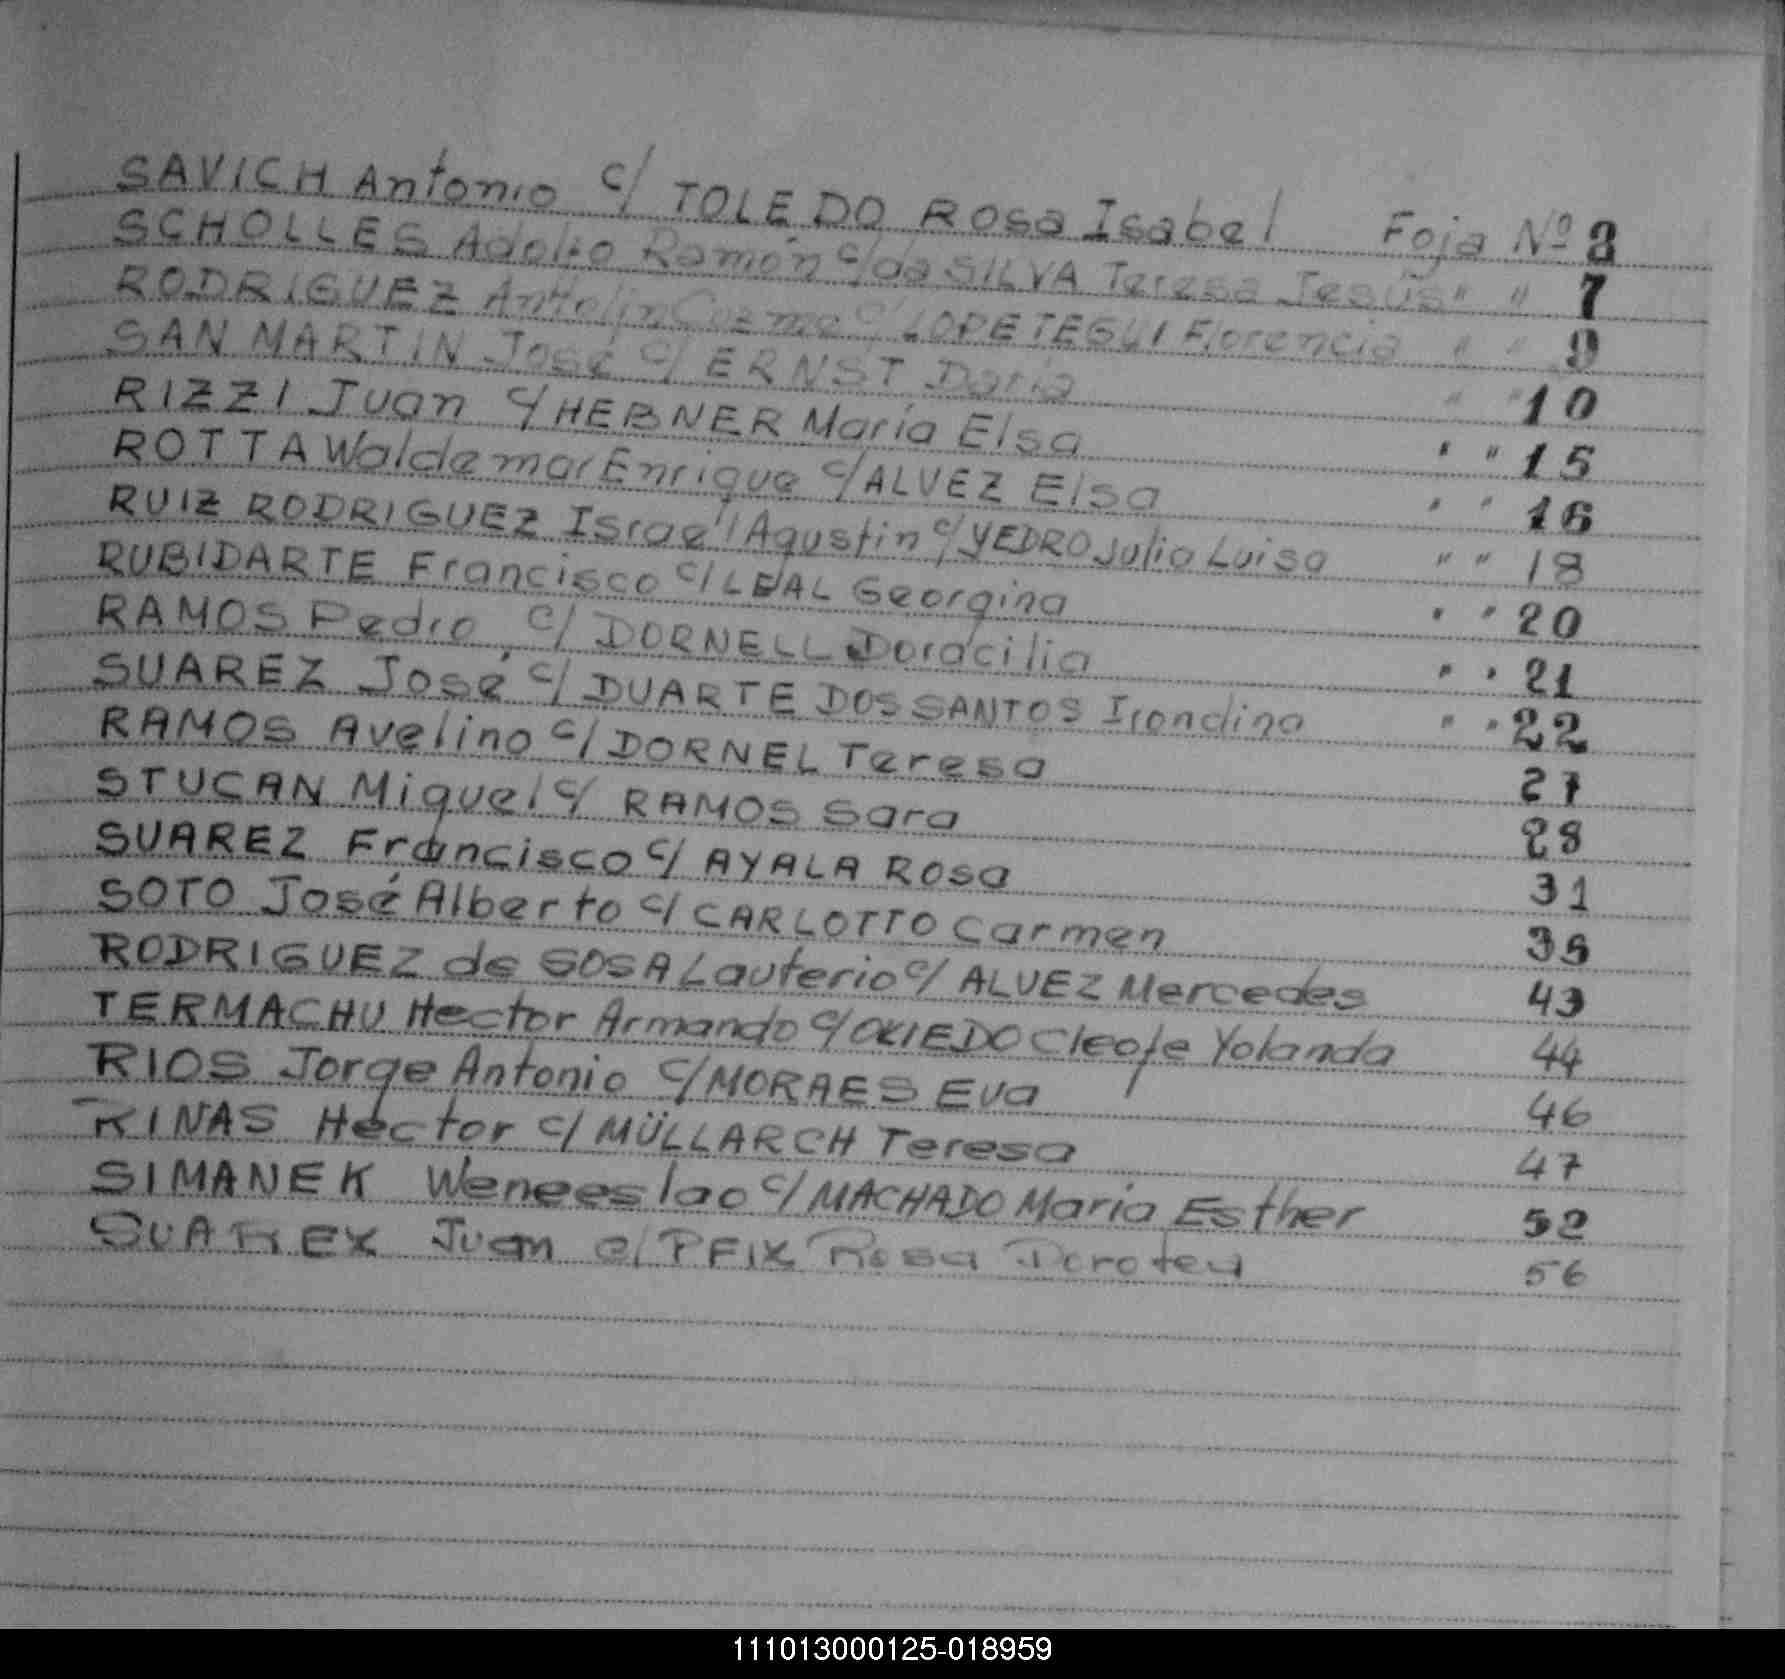 SAVICH Antonio c/ TOLEDO Rosa Isabel Foja Nº 3
SCHOLLES Adolfo Ramón c/da SILVA Teresa Jesús " " 7
RODRIGUEZ Antolín Cozme c/ LOPETEGUI Florencia " " 9
SAN MARTIN José c/ ERNST Doria " " 10
RIZZI Juan c/ HEBNER María Elsa " " 15
ROTTA Waldemar Enrique c/ ALVEZ Elsa " " 16
RUIZ RODRIGUEZ Israel Agustin c/ YEDRO Julia Luisa " " 18
RUBIDARTE Francisco c/ LEAL Georgina " " 20
RAMOS Pedro c/ DORNELL Doracilia " " 21
SUAREZ José c/ DUARTE DOS SANTOS Irondina " " 22
RAMOS Avelino c/ DORNEL Teresa 27
STUCAN Miguel c/ RAMOS Sara 28
SUAREZ Francisco c/ AYALA Rosa 31
SOTO José Alberto c/ CARLOTTO Carmen
RODRIGUEZ de SOSA Lauterio c/ ALVEZ Mercedes 43
TERMACHU Hector Armando c/ Cleofe Yolanda 44
RIOS Jorge Antonio c/ MORAES Eva 46
RINAS Hector c/ MÜLLARCH Teresa 47
SIMANEK Weneeslao c/ MACHADO María Esther 52
SUAREX Juan c/ PFIX Rosa Dorotea 56
111013000125-018959